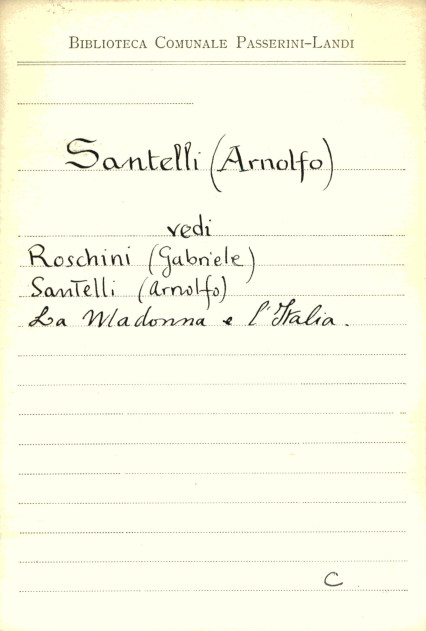 BIBLIOTECA COMUNALE PASSERINI-LANDI
Santelli (Arnolfo)
vedi
Roschini (Gabriele)
Santelli (Arnolfo)
La Madonna e l'Italia.
C